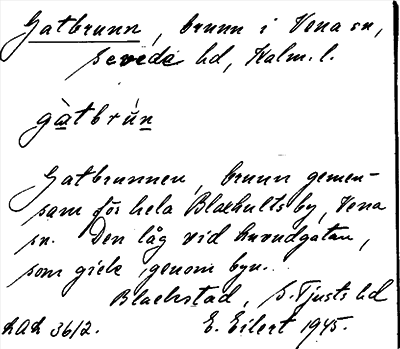 Gatbrunn, brunn i Vena sn,
Sevede hd, Kalm. l.
gàtbrún
Gatbrunnen, brunn gemen-
sam för hela Blaekults by, Vena
sn. Den låg vid huvudgatan,
som gick genom byn.
Blackstad, S. Tjusts hd
LAL 3612. E. Eilert 1945.